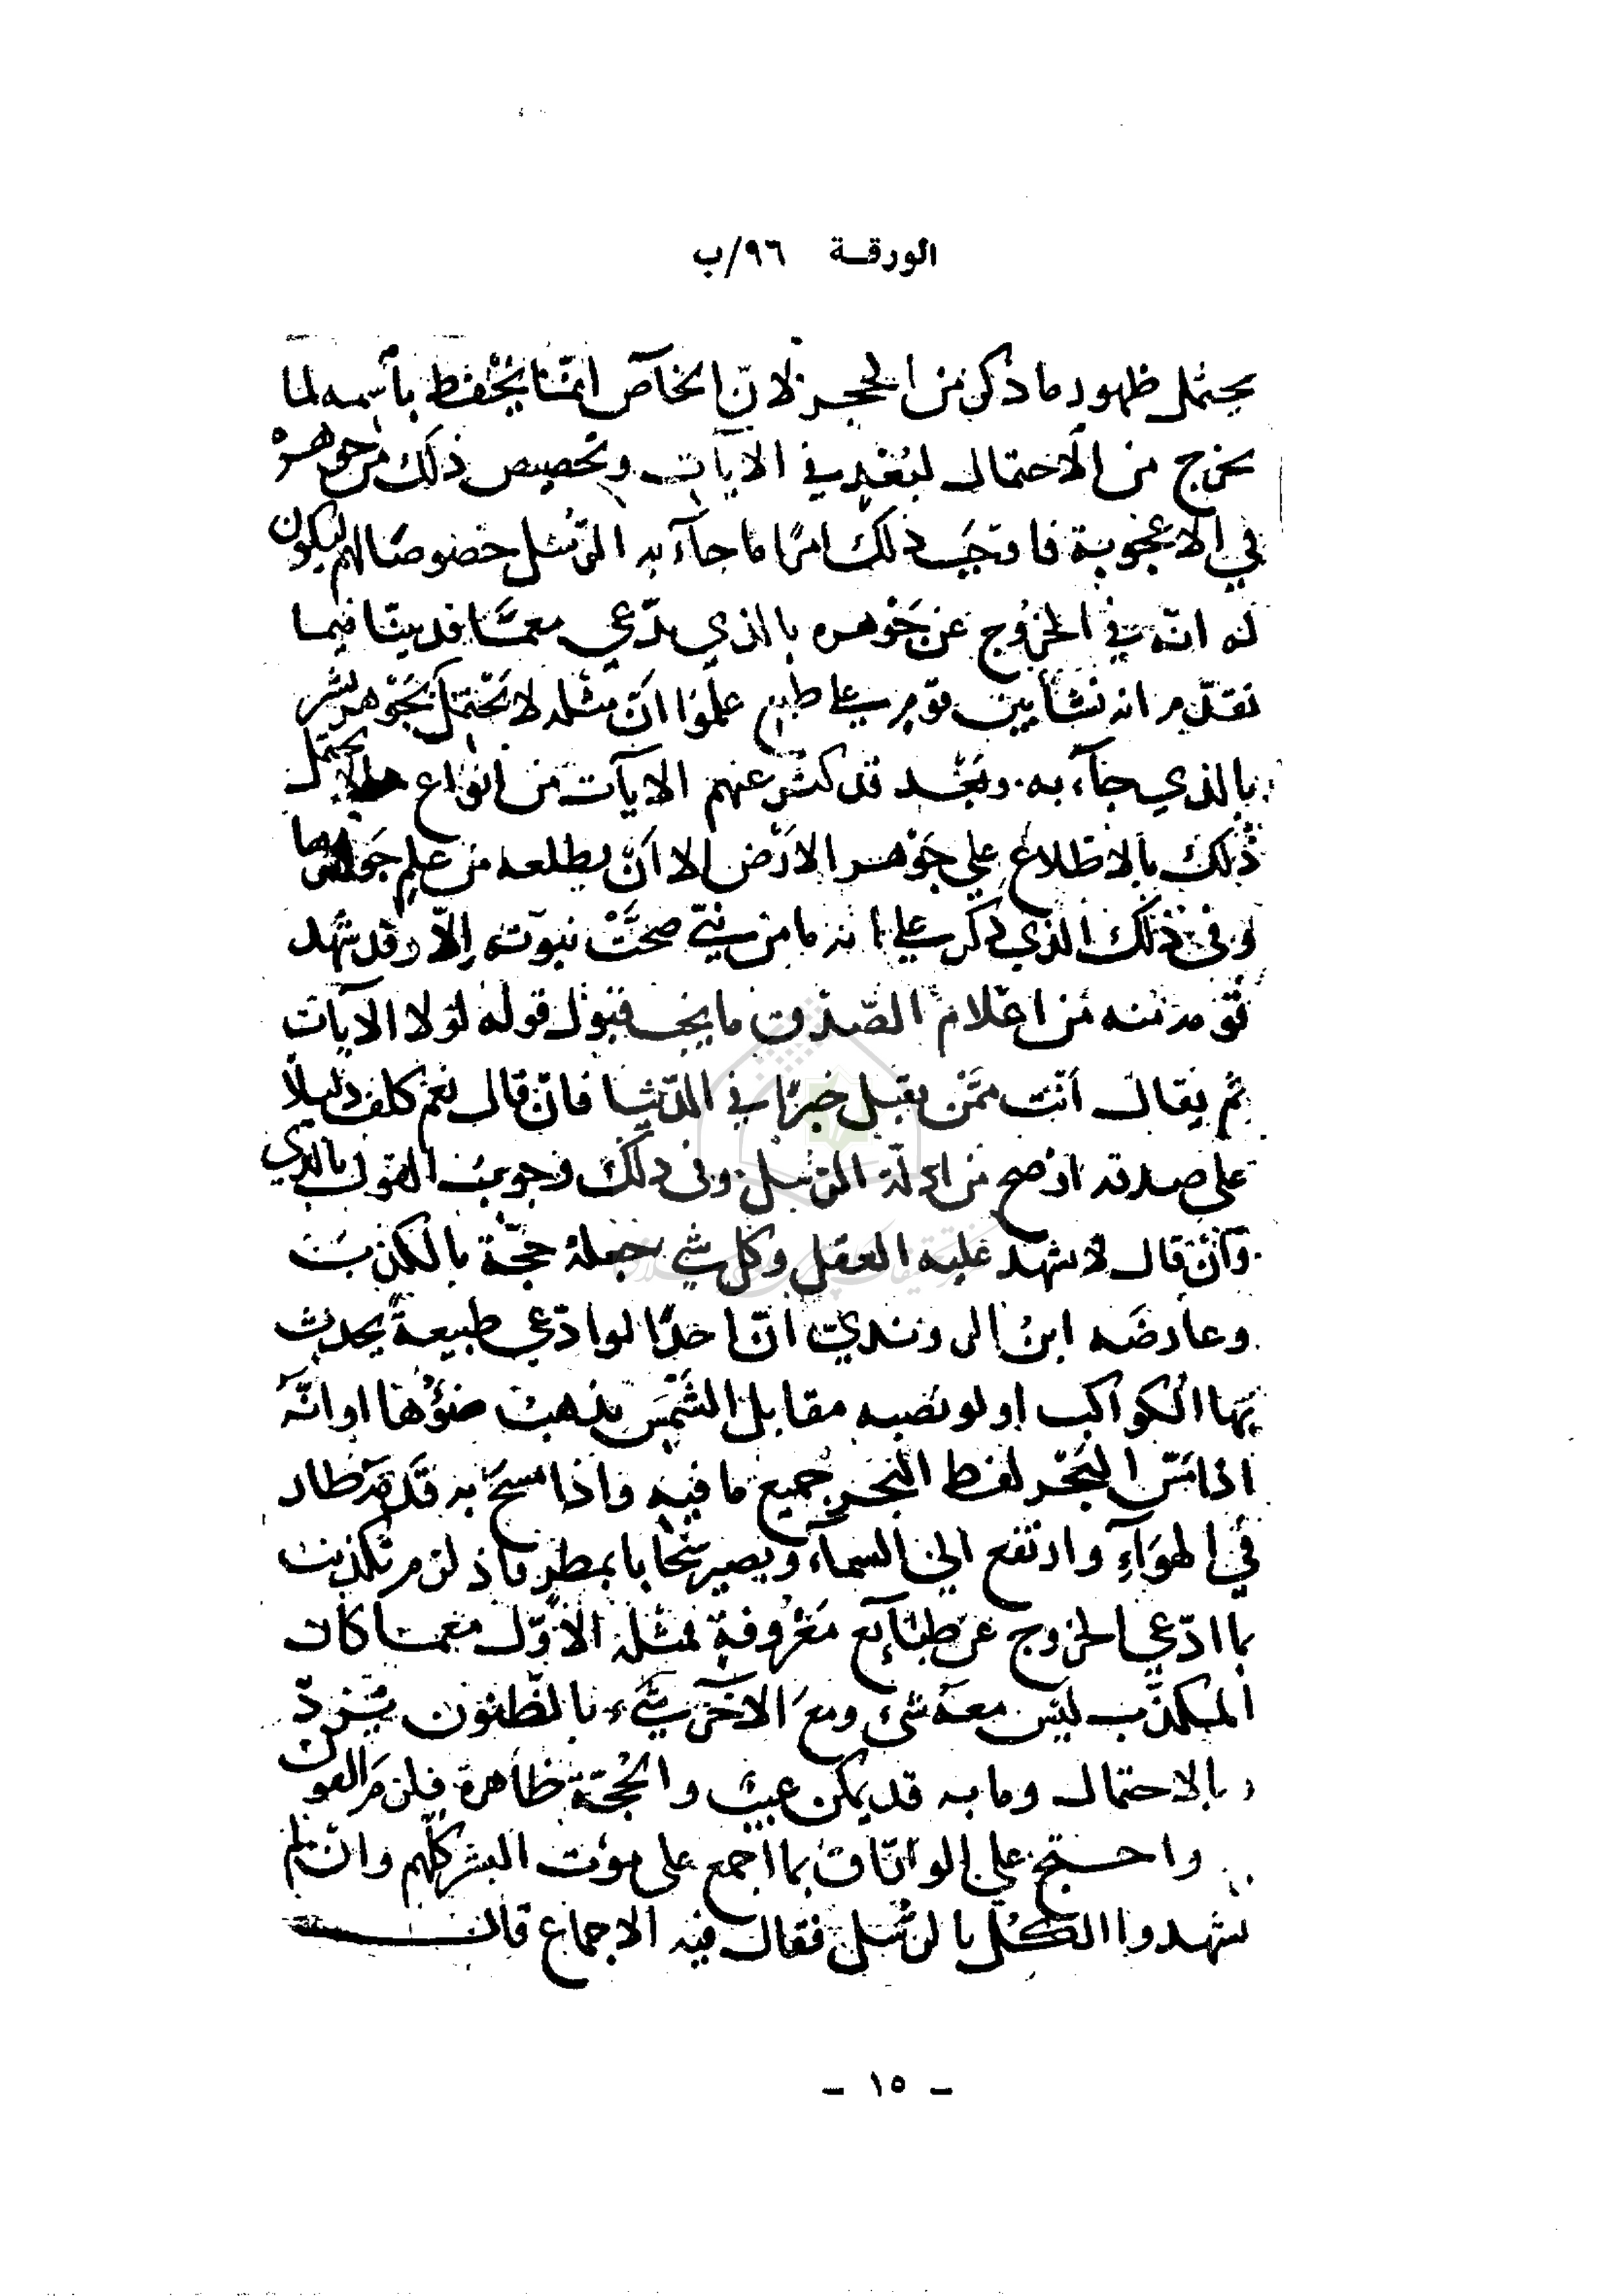 الورقة ٩٦/ب
يحتمل ظهور ما ذكر من الحجر لان الخاصّ انما يُحْفظ بأسمه لما
يخرج من الاحتمال لبُعْدٍ في الآيات وتخصيص ذلك من جوهر
في الاعجوبة فاوجب ذلك امرًا ما جآء به الرسُل خصوصًا لهم ليكون
له انّه في الخرُوج عن جَوْهره بالذي يدّعي معمّا قد بينّا فيما
تقدّم انه نشأ بين قوم على طبع علمُوا انّ مثله لا يَحْتمل بجَوْهر بشر
بالذي جآء به وبَعْد قد كثر عنهم الايآت من انواع لا يحتمل
ذلك بالاطلاع على جَوْهر الارْض الا انْ يطلعه من علم جَواهرها
وفى ذلك الذي ذكر على انه ما من نبيّ صحّتْ نبوّته إلّا وقد شهد
قومه منه من اعْلام الصّدق ما يجب قبول قوله لولا الآيات
ثم يقال أنت ممّن يقبل خبرًا في الدّنيا فان قال نعم كلف دليلًا
على صدقه اوضح من ادلّة الرّسل وفى ذلك وجوب القول بالذي
وَانْ قال لا شهد عليه العقل وكل شي جعله حجّة بالكذب
وعارضَه ابن الروندي انّ احدًا لو ادّعي طبيعةً يحدث
بها الكواكب او لو نصبه مقابل الشمس يذهب ضوْؤها او انّه
اذا مَسّ البَحْر لفظ البحر جميع ما فيه واذا مسح به قدَمَه طار
في الهَوَآءِ وارتفع الى السمآء ويصير سَحابا يمطر فاذ لزم تكذيب
بما ادّعي الخروج عن طبآئع مَعْرُوفةٍ فمثله الاوّل معما كان
المكذّب ليس معه شئ ومع الاخر شيء بالظنون يتزدّ
بالاحتمال وما به قد يمكن عيب والحجّة ظاهرة فلزم القول
واحتج على الورّاق بما اجمع على موت البشر كلّهم وان لم
شهدوا الكُل بالرسُل فقال فيه الاجماع قال
- ١٥ -